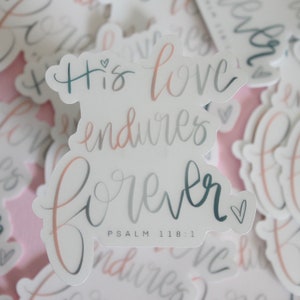 His love
endures
forever
PSALM 118:1